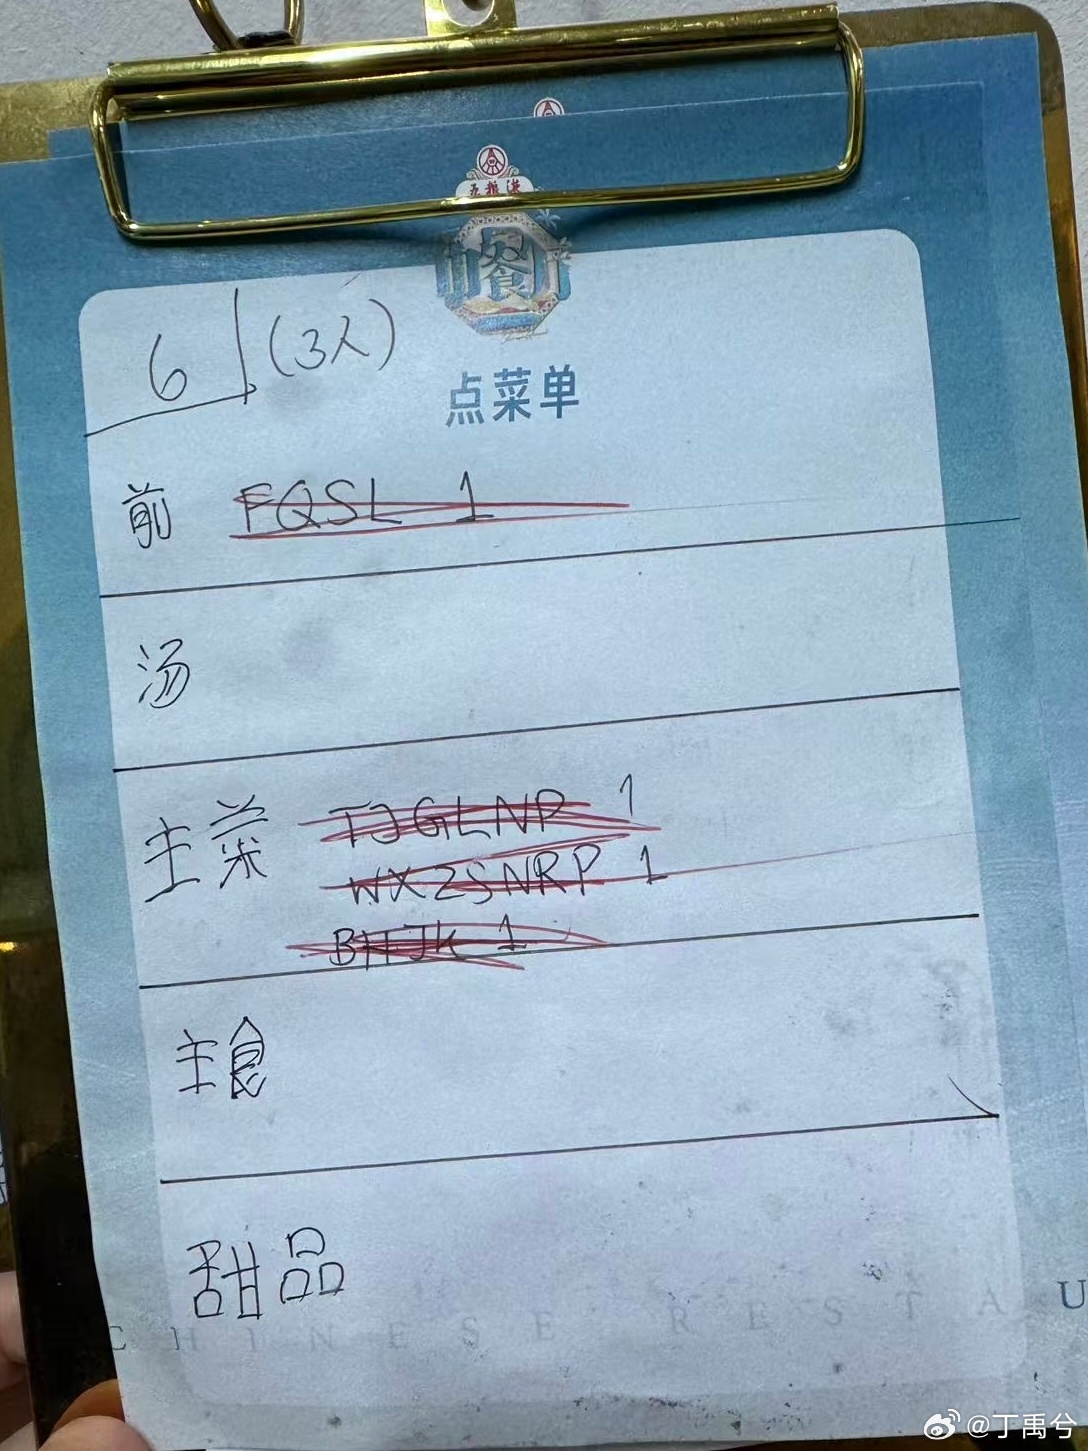 五粮液
中餐厅
6 (3人)
点菜单
前 FQSL 1
汤
主菜 TJGLNP 1
WXZSNRP 1
BHJK 1
主食
甜品
CHINESE RESTAU
@丁禹兮